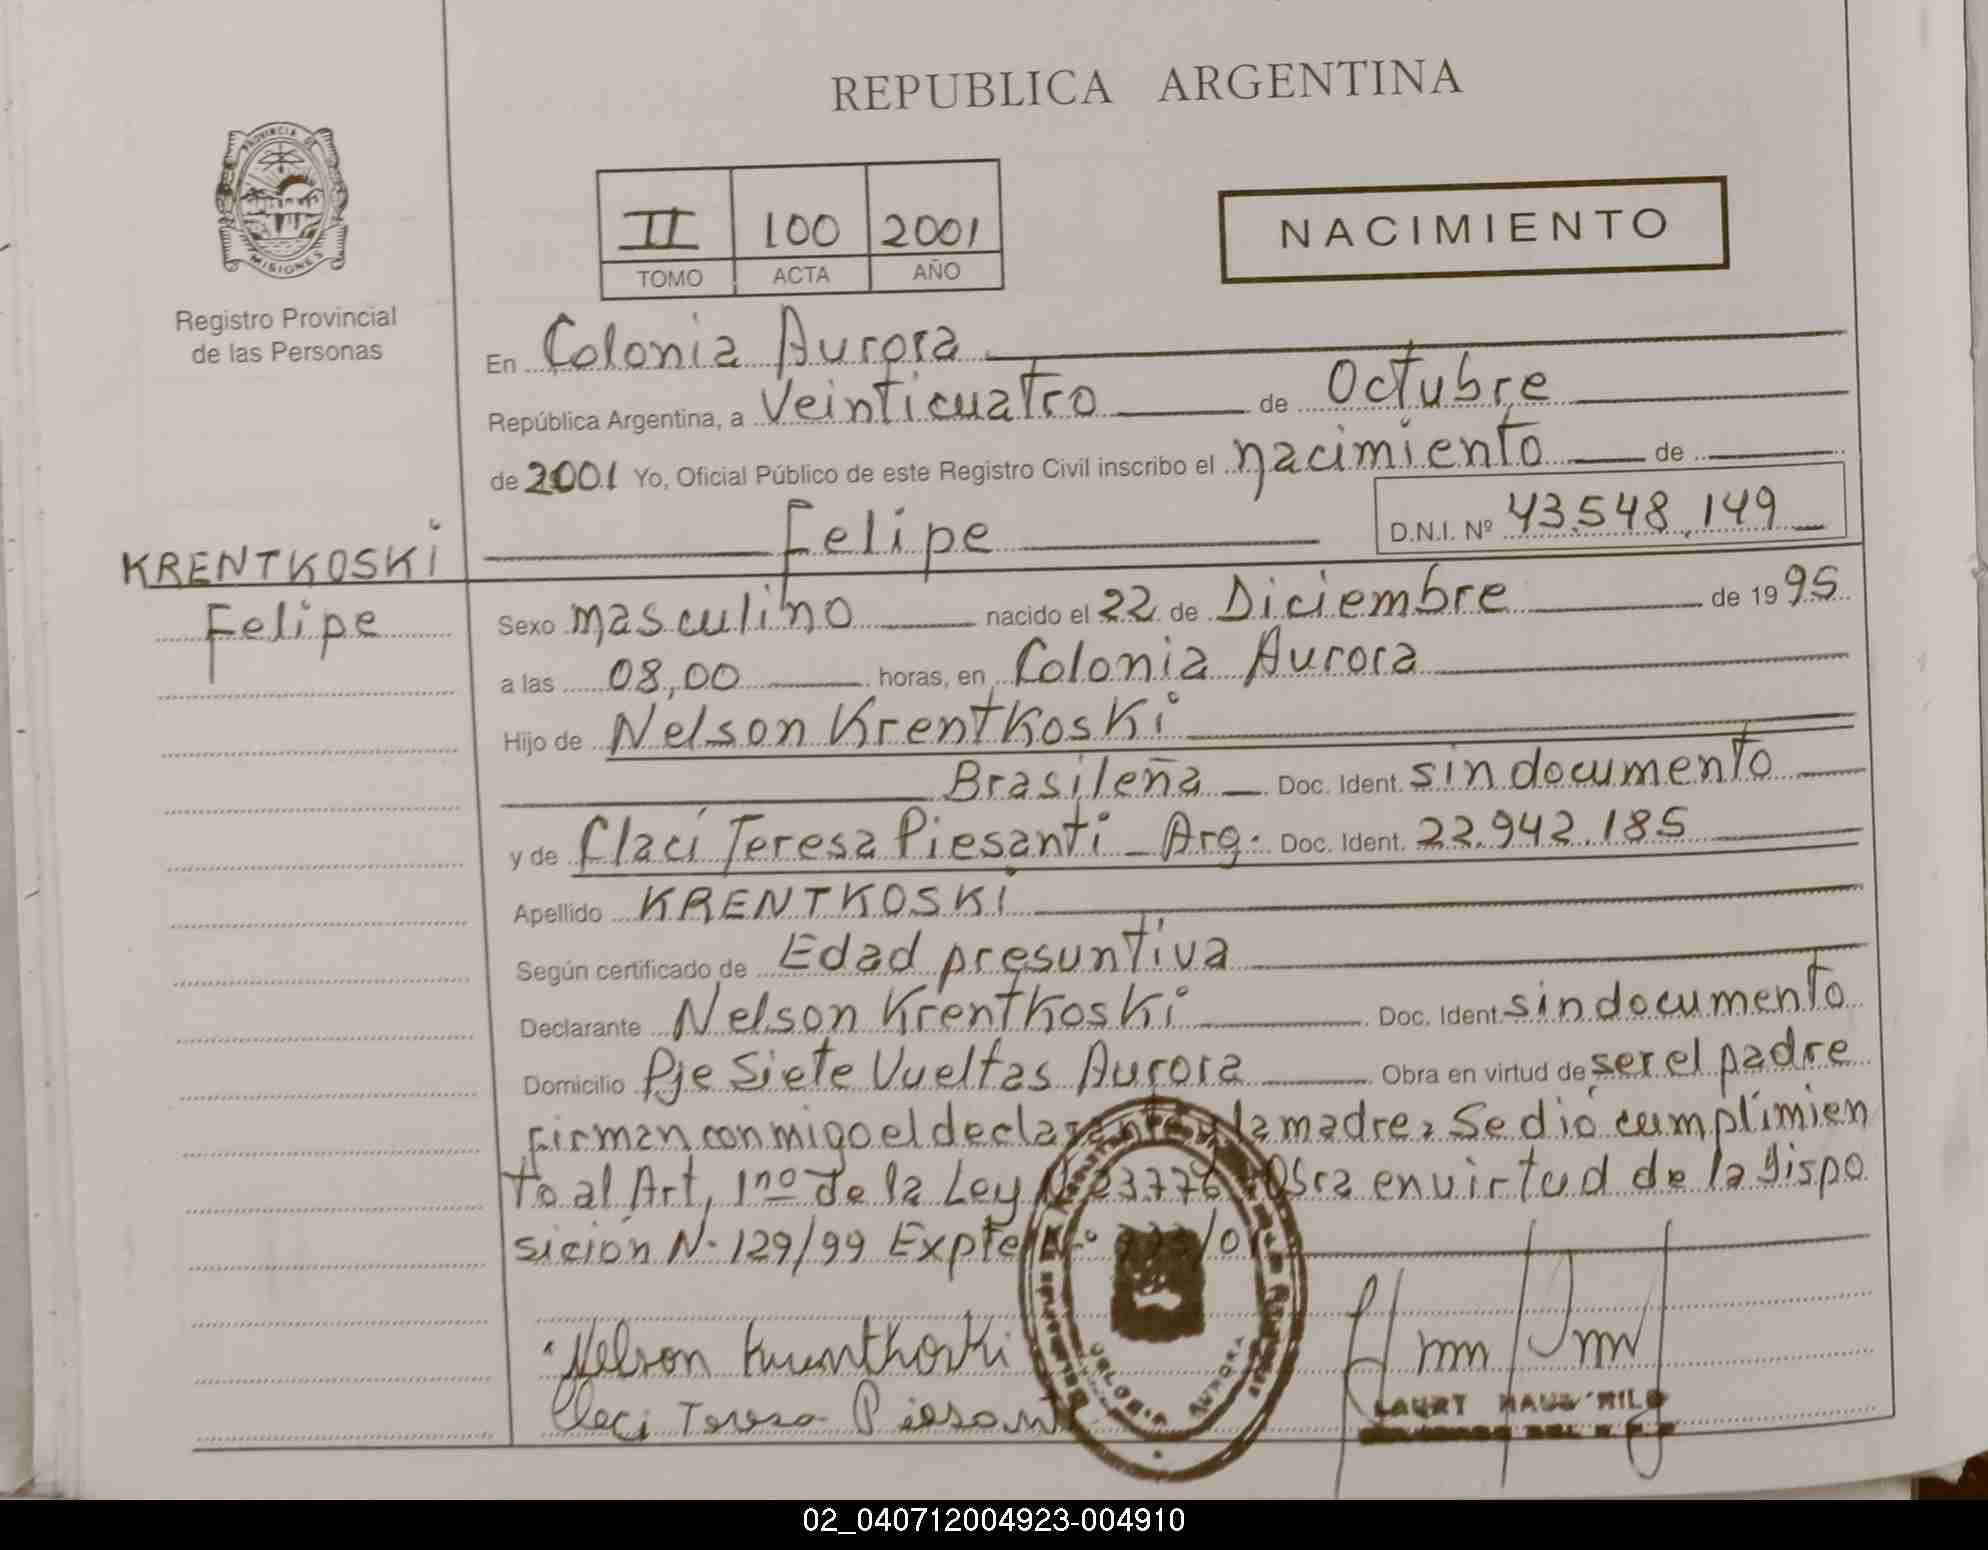 REPUBLICA ARGENTINA
PROVINCIA DE MISIONES
Registro Provincial
de las Personas
II 100 2001
TOMO ACTA AÑO
NACIMIENTO
En Colonia Aurora
República Argentina, a Veinticuatro de Octubre
de 2001 Yo, Oficial Público de este Registro Civil inscribo el nacimiento de
Felipe D.N.I. Nº 43.548.149
KRENTKOSKi
Felipe
Sexo masculino nacido el 22 de Diciembre de 1995
a las 08,00 horas, en Colonia Aurora
Hijo de Nelson KrentKosKi
Brasileña Doc. Ident. sin documento
y de Claci Teresa Piesanti _ Arg. Doc. Ident. 22.942.185
Apellido KRENTKOSKi
Según certificado de Edad presuntiva
Declarante Nelson KrentKosKi Doc. Ident. sin documento
Domicilio Pje Siete Vueltas Aurora Obra en virtud de ser el padre
firman conmigo el declarante y la madre, Se dió cumplimien
to al Art, 1no de la Ley 23776 Obra en virtud de la dispo
sición N. 129/99 Expte N.º
Nelson Krentkoski
Claci Teresa Piesanti
COLONIA AURORA
02_040712004923-004910